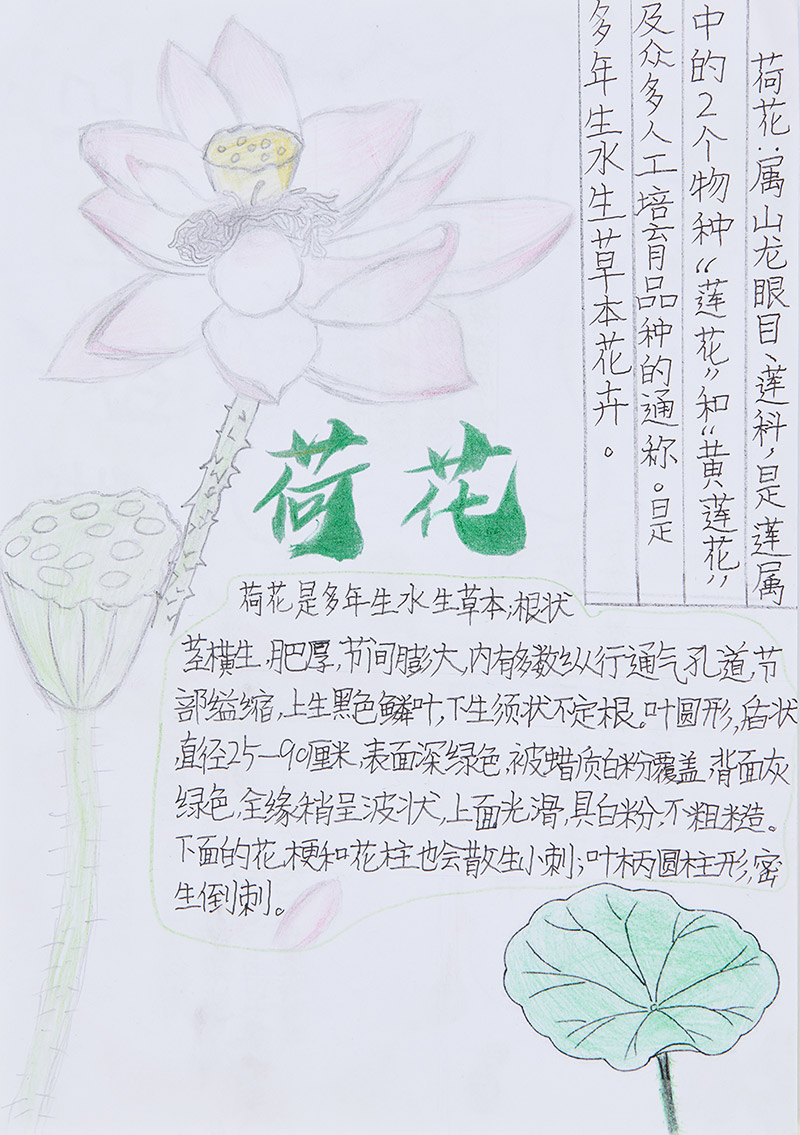 荷花：属山龙眼目、莲科，是莲属
中的2个物种“莲花”和“黄莲花”
及众多人工培育品种的通称。是
多年生水生草本花卉。
荷花
荷花是多年生水生草本；根状
茎横生，肥厚，节间膨大，内有多数纵行通气孔道，节
部缢缩，上生黑色鳞叶，下生须状不定根。叶圆形，盾状
直径25—90厘米，表面深绿色，被蜡质白粉覆盖，背面灰
绿色，全缘稍呈波状，上面光滑，具白粉，不粗糙。
下面的花梗和花柱也会散生小刺；叶柄圆柱形，密
生倒刺。